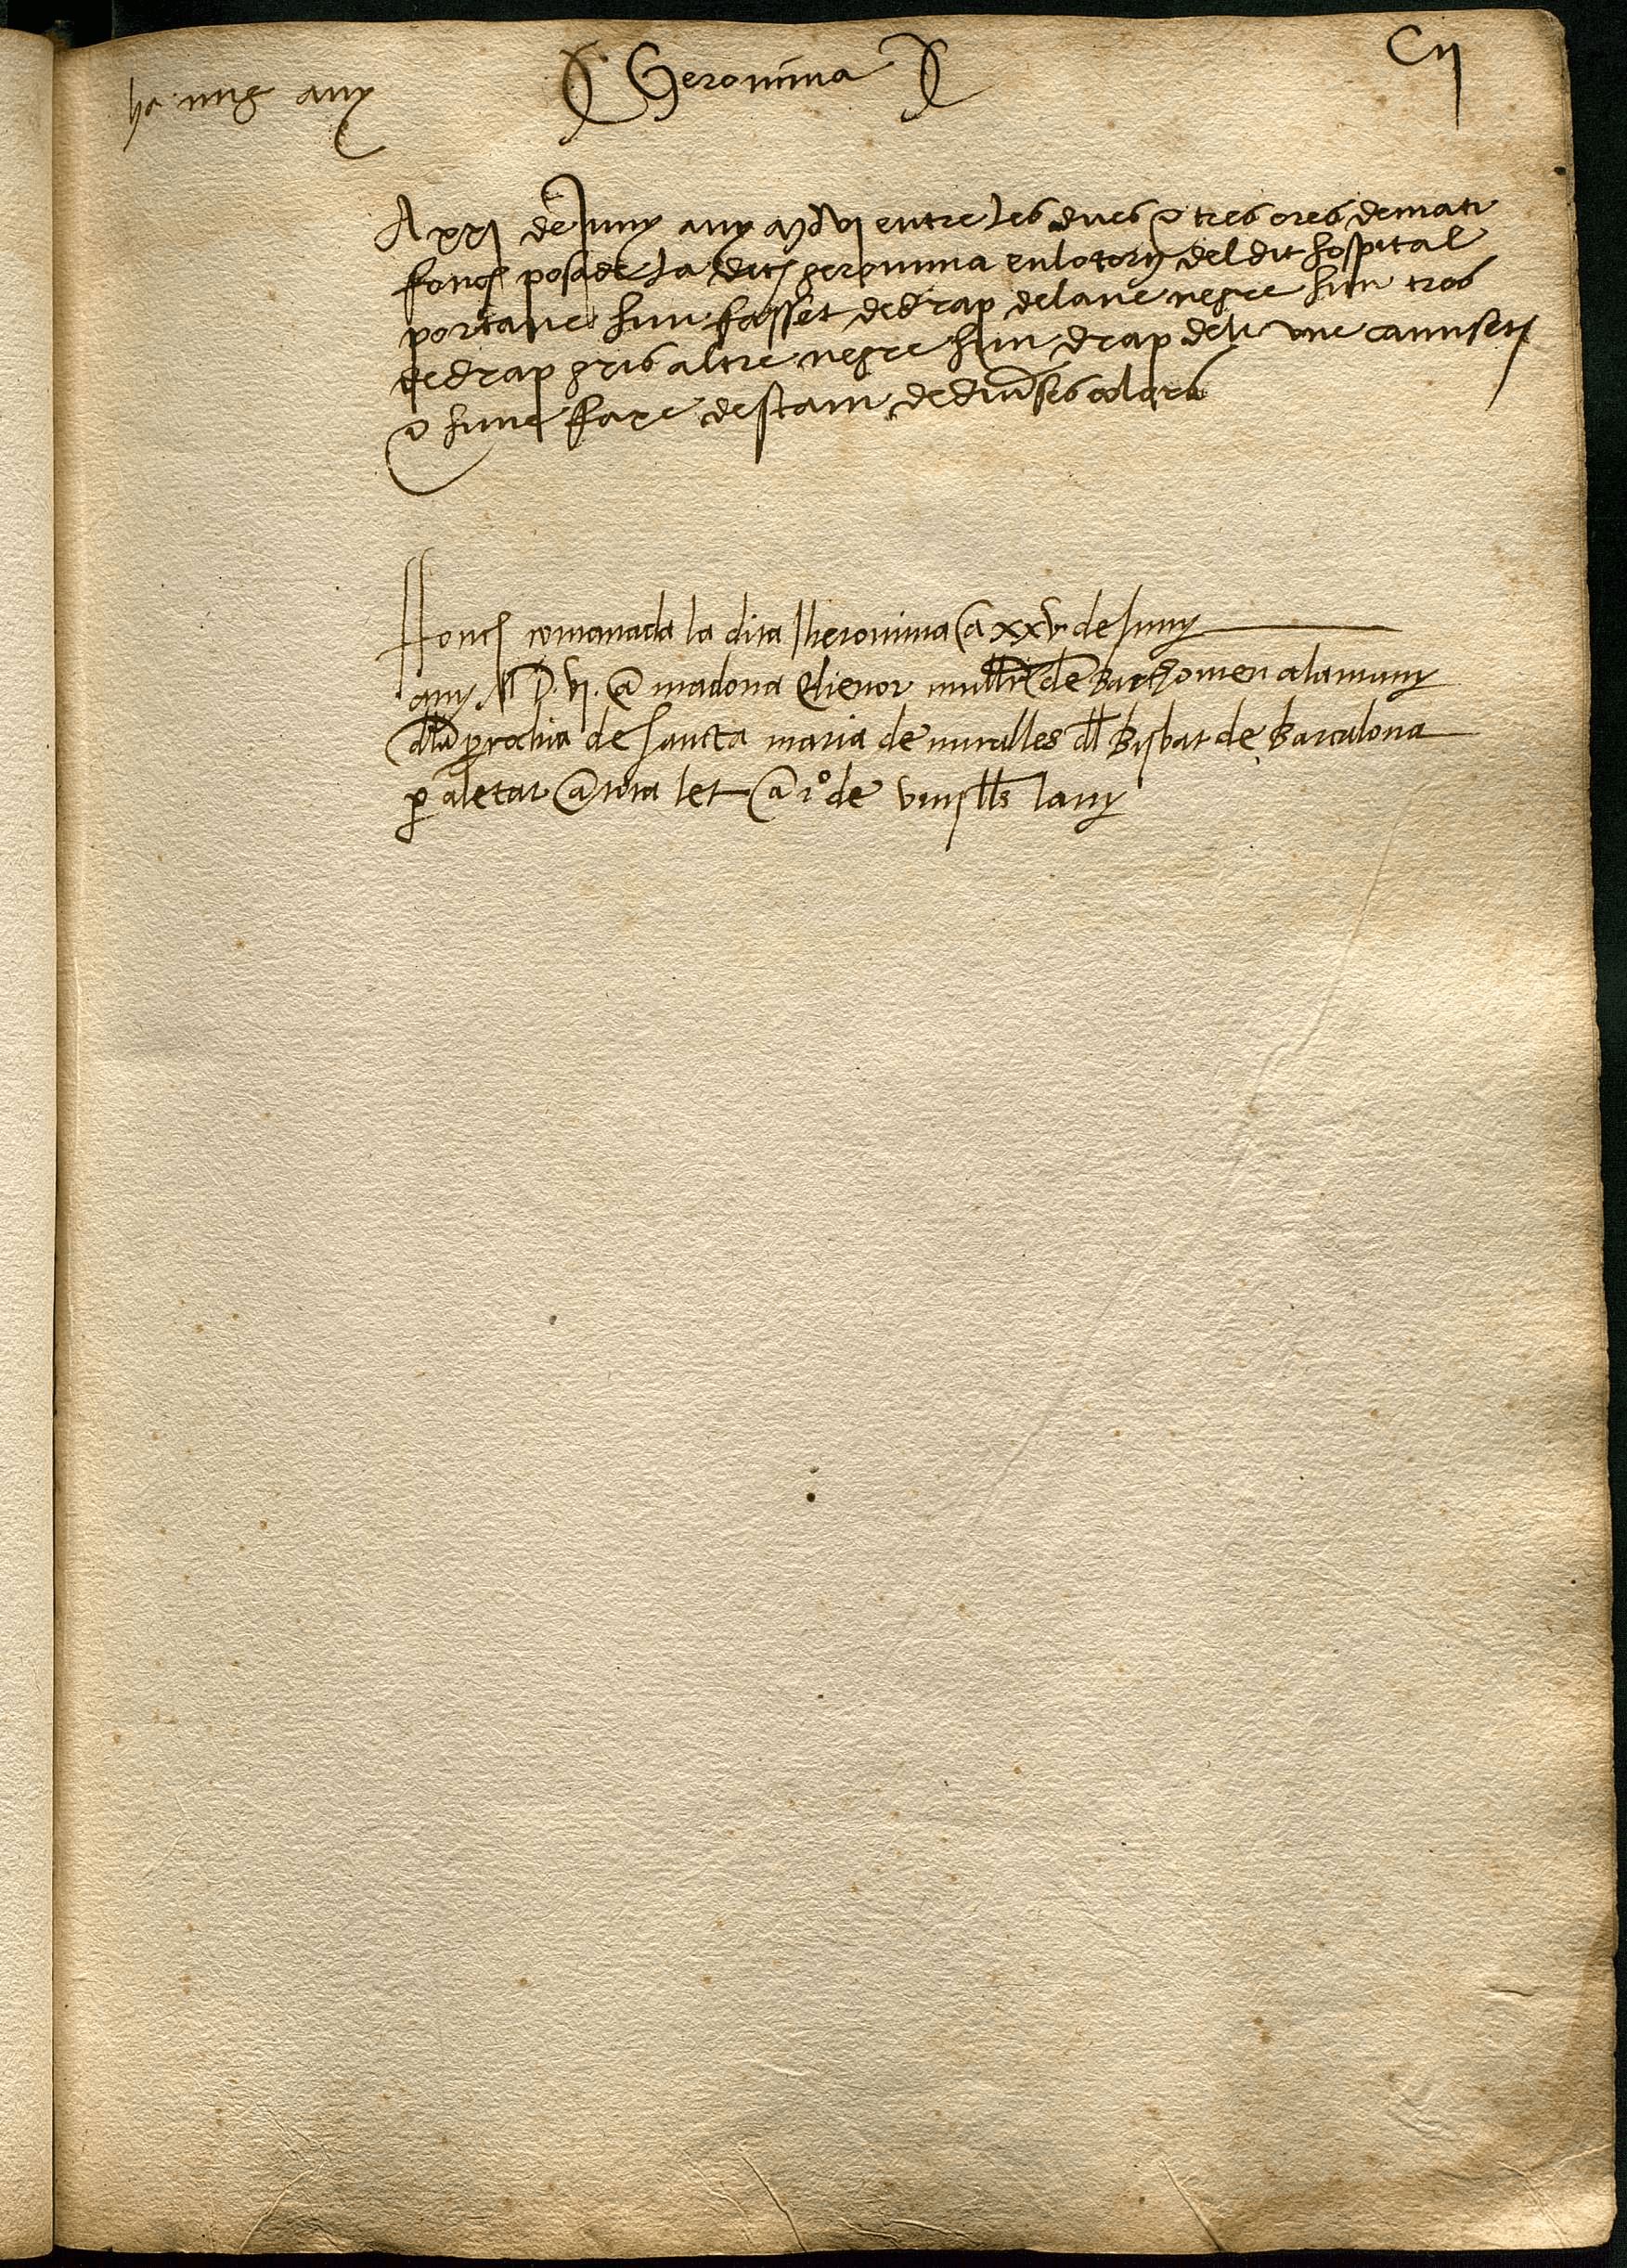 ha mig any
Geronima
Cij
A xxj de Juny any MDVj entre les dues e tres ores de mati
fonch posade la dita geronima en lo torn del dit hospital
portave hun fasset de drap de lane negre hun tros
de drap gris altre negre hun drap de li une camiseta
e hune faxe destam de diverses colors
Fonch comanada la dita Jheronima a xxv de Juny
any M D. vj. a madona Elienor mullr de Barthomeu alamany
dla parrochia de Sancta maria de miralles dll Bisbat de Barcalona
per aletar a tota let a de lany